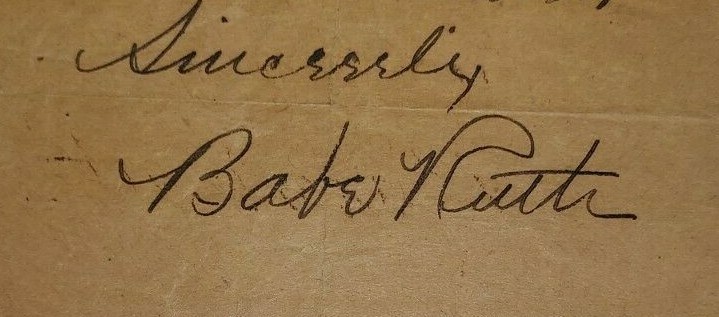 Sincerely,
Babe Ruth